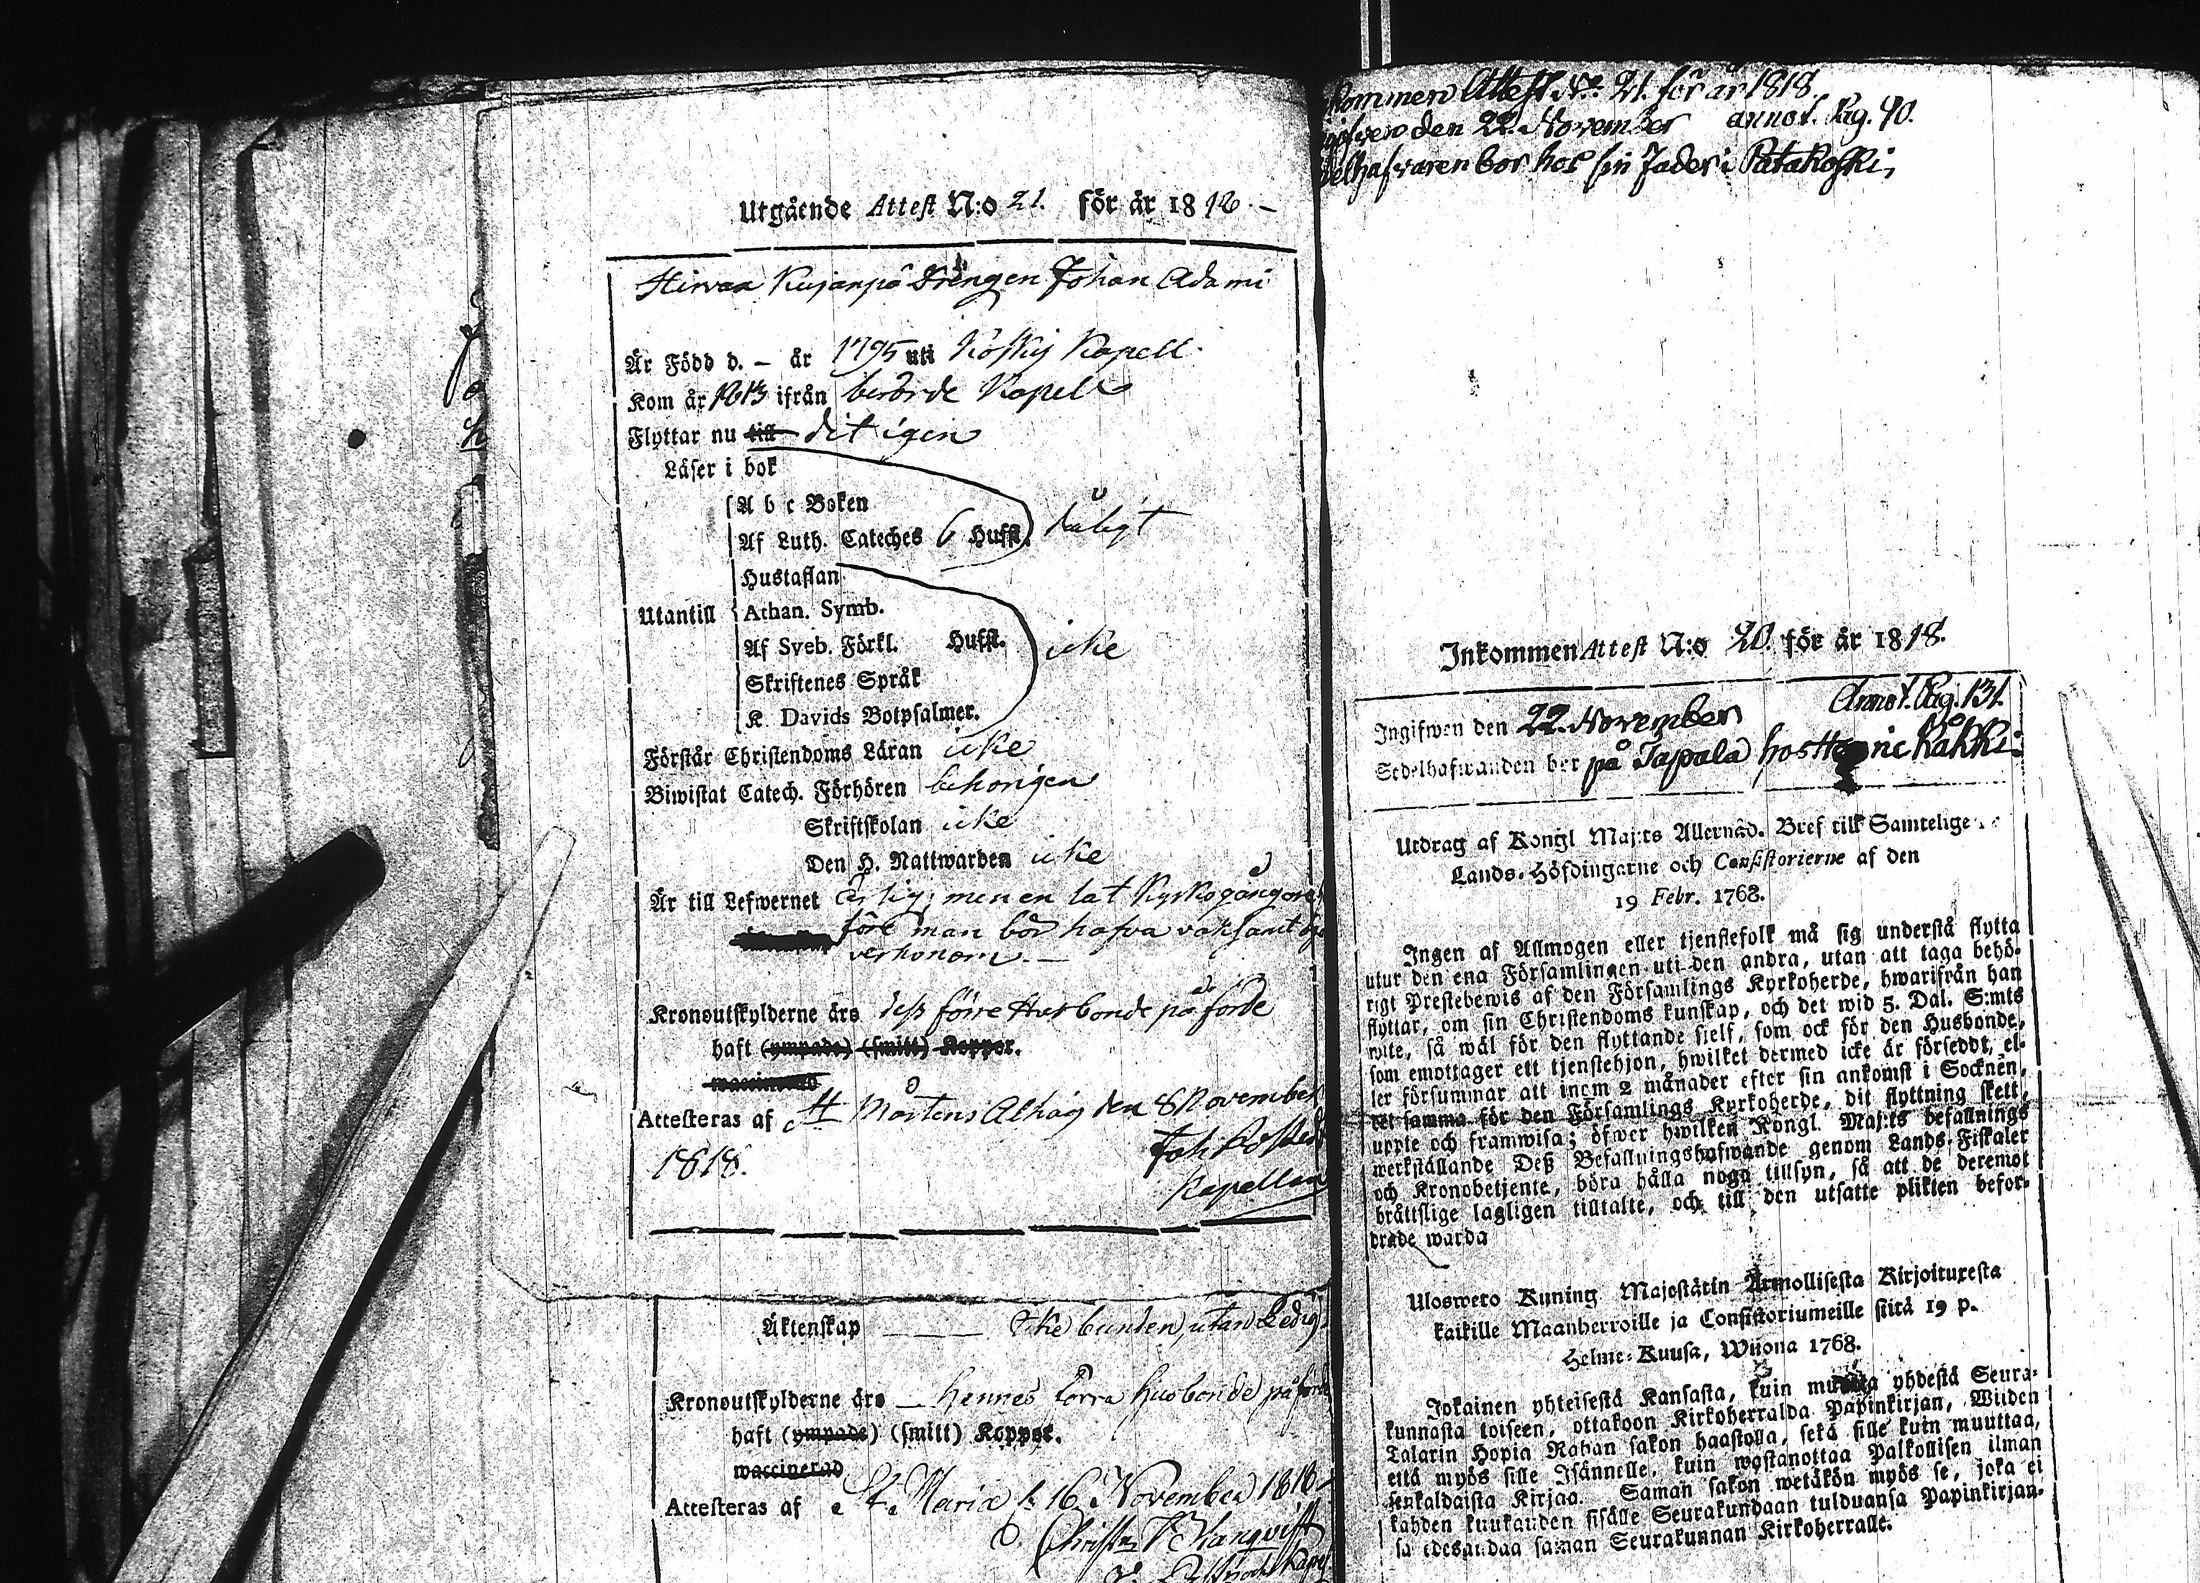 Utgående Attest N:o 21. för år 1818.
Hirvaa Kujanpä Drängen Johan Adami
Är Född d. – år 1795 uti Koskis Kapell.
Kom år 1813 ifrån berörde Kapell
Flyttar nu till dit igen
Läser i bok
A b c Boken
Af Luth. Cateches 6 Hufst. dåligt
Hustaflan
Utantill Athan. Symb.
Af Sveb. Förkl. Hufst. icke
Skriftenes Språk
K. Davids Botpsalmer.
Förstår Christendoms Läran icke
Biwistat Catech. Förhören behörigen
Skriftskolan icke
Den H. Nattwarden icke
Är till Lefwernet ärlig; men en lat Kyrkogångare
före man bör hafva vaksamt
honom. –
Kronoutskylderne äro dess förre Husbonde påförde
haft (ympade) (smitt) Koppor.
waccinerad
Attesteras af St Mårtens Alhäg den 8 November
1818.
Joh
Kapellan
Äktenskap – – – Icke bunden, utan Ledig.
Kronoutskylderne äro – hennes förra husbonde påförde
haft (ympade) (smitt) Koppor.
waccinerad
Attesteras af St. Mariæ d. 16 November 1818
kommen Attest No: 21. för år 1818.
gifven den 22. November annot. Pag. 90.
delhafvaren bor hos sin Fader i Patakoski,
Inkommen Attest N:o 20. för år 1818.
Ingifwen den 22. November Annot. Pag. 131.
Sedelhafwanden bor på Tapala hos Henric Kåkki.
Utdrag af Kongl Maj:ts Allernåd. Bref till Samtelige
Lands-Höfdingarne och Consistorierne af den
19 Febr. 1768.
Ingen af Allmogen eller tjenstefolk må sig understå flytta
utur den ena Församlingen uti den andra, utan att taga behö-
rigt Prestebewis af den Församlings Kyrkoherde, hwarifrån han
flyttar, om sin Christendoms kunskap, och det wid 5. Dal. S:mts
wite, så wäl för den flyttande sielf, som ock för den Husbonde,
som emottager ett tjenstehjon, hwilket dermed icke är försedt, el-
ler försummar att inom 2 månader efter sin ankomst i Socknen,
det samma för den Församlings Kyrkoherde, dit flyttning skett,
uppte och framwisa; öfwer hwilken Kongl. Maj:ts befallnings
werkställande Deß Befallningshafwande genom Lands-Fiskaler
och Kronobetjente, böra hålla noga tillsyn, så att de deremot
brättslige lagligen tilltalte, och till den utsatte plikten befor-
drade warda
Uloswero Kuning Majestätin Armollisesta Kirjoituxesta
kaikille Maanherroille ja Consistoriumeille siitä 19 p.
Helme-Kuusa, Wuona 1768.
Jokainen yhteisestä Kansasta, kuin muutta yhdestä Seura-
kunnasta toiseen, ottakoon Kirkoherralda Papinkirjan, Wiiden
Talarin Hopia Rahan sakon haastolla, sekä sille kuin muuttaa,
että myös sille Isännelle, kuin wastanottaa Palkollisen ilman
senkaldaista Kirjaa. Saman sakon wetäkön myös se, joka ei
kahden kuukauden sisälle Seurakundaan tulduansa Papinkirjan-
sa edesandaa saman Seurakunnan Kirkoherralle.